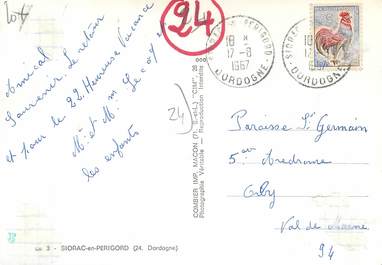 lot
24
Amical
Souvenir. Le retour
et pour le 22. Heureuse Vacance
Mr et Mme
les enfants
24
COMBIER IMP. MACON (S.-et-L.) "CIM"
Photographie Véritable - Reproduction Interdite
SIORAC-EN-PERIGORD
18 H
17-8
1967
DORDOGNE
SIORAC-EN-PERIGORD
18 H
17-8
1967
DORDOGNE
Paroisse St Germain
5
Orly
Val de Marne
94
3 - SIORAC-en-PERIGORD (24. Dordogne)